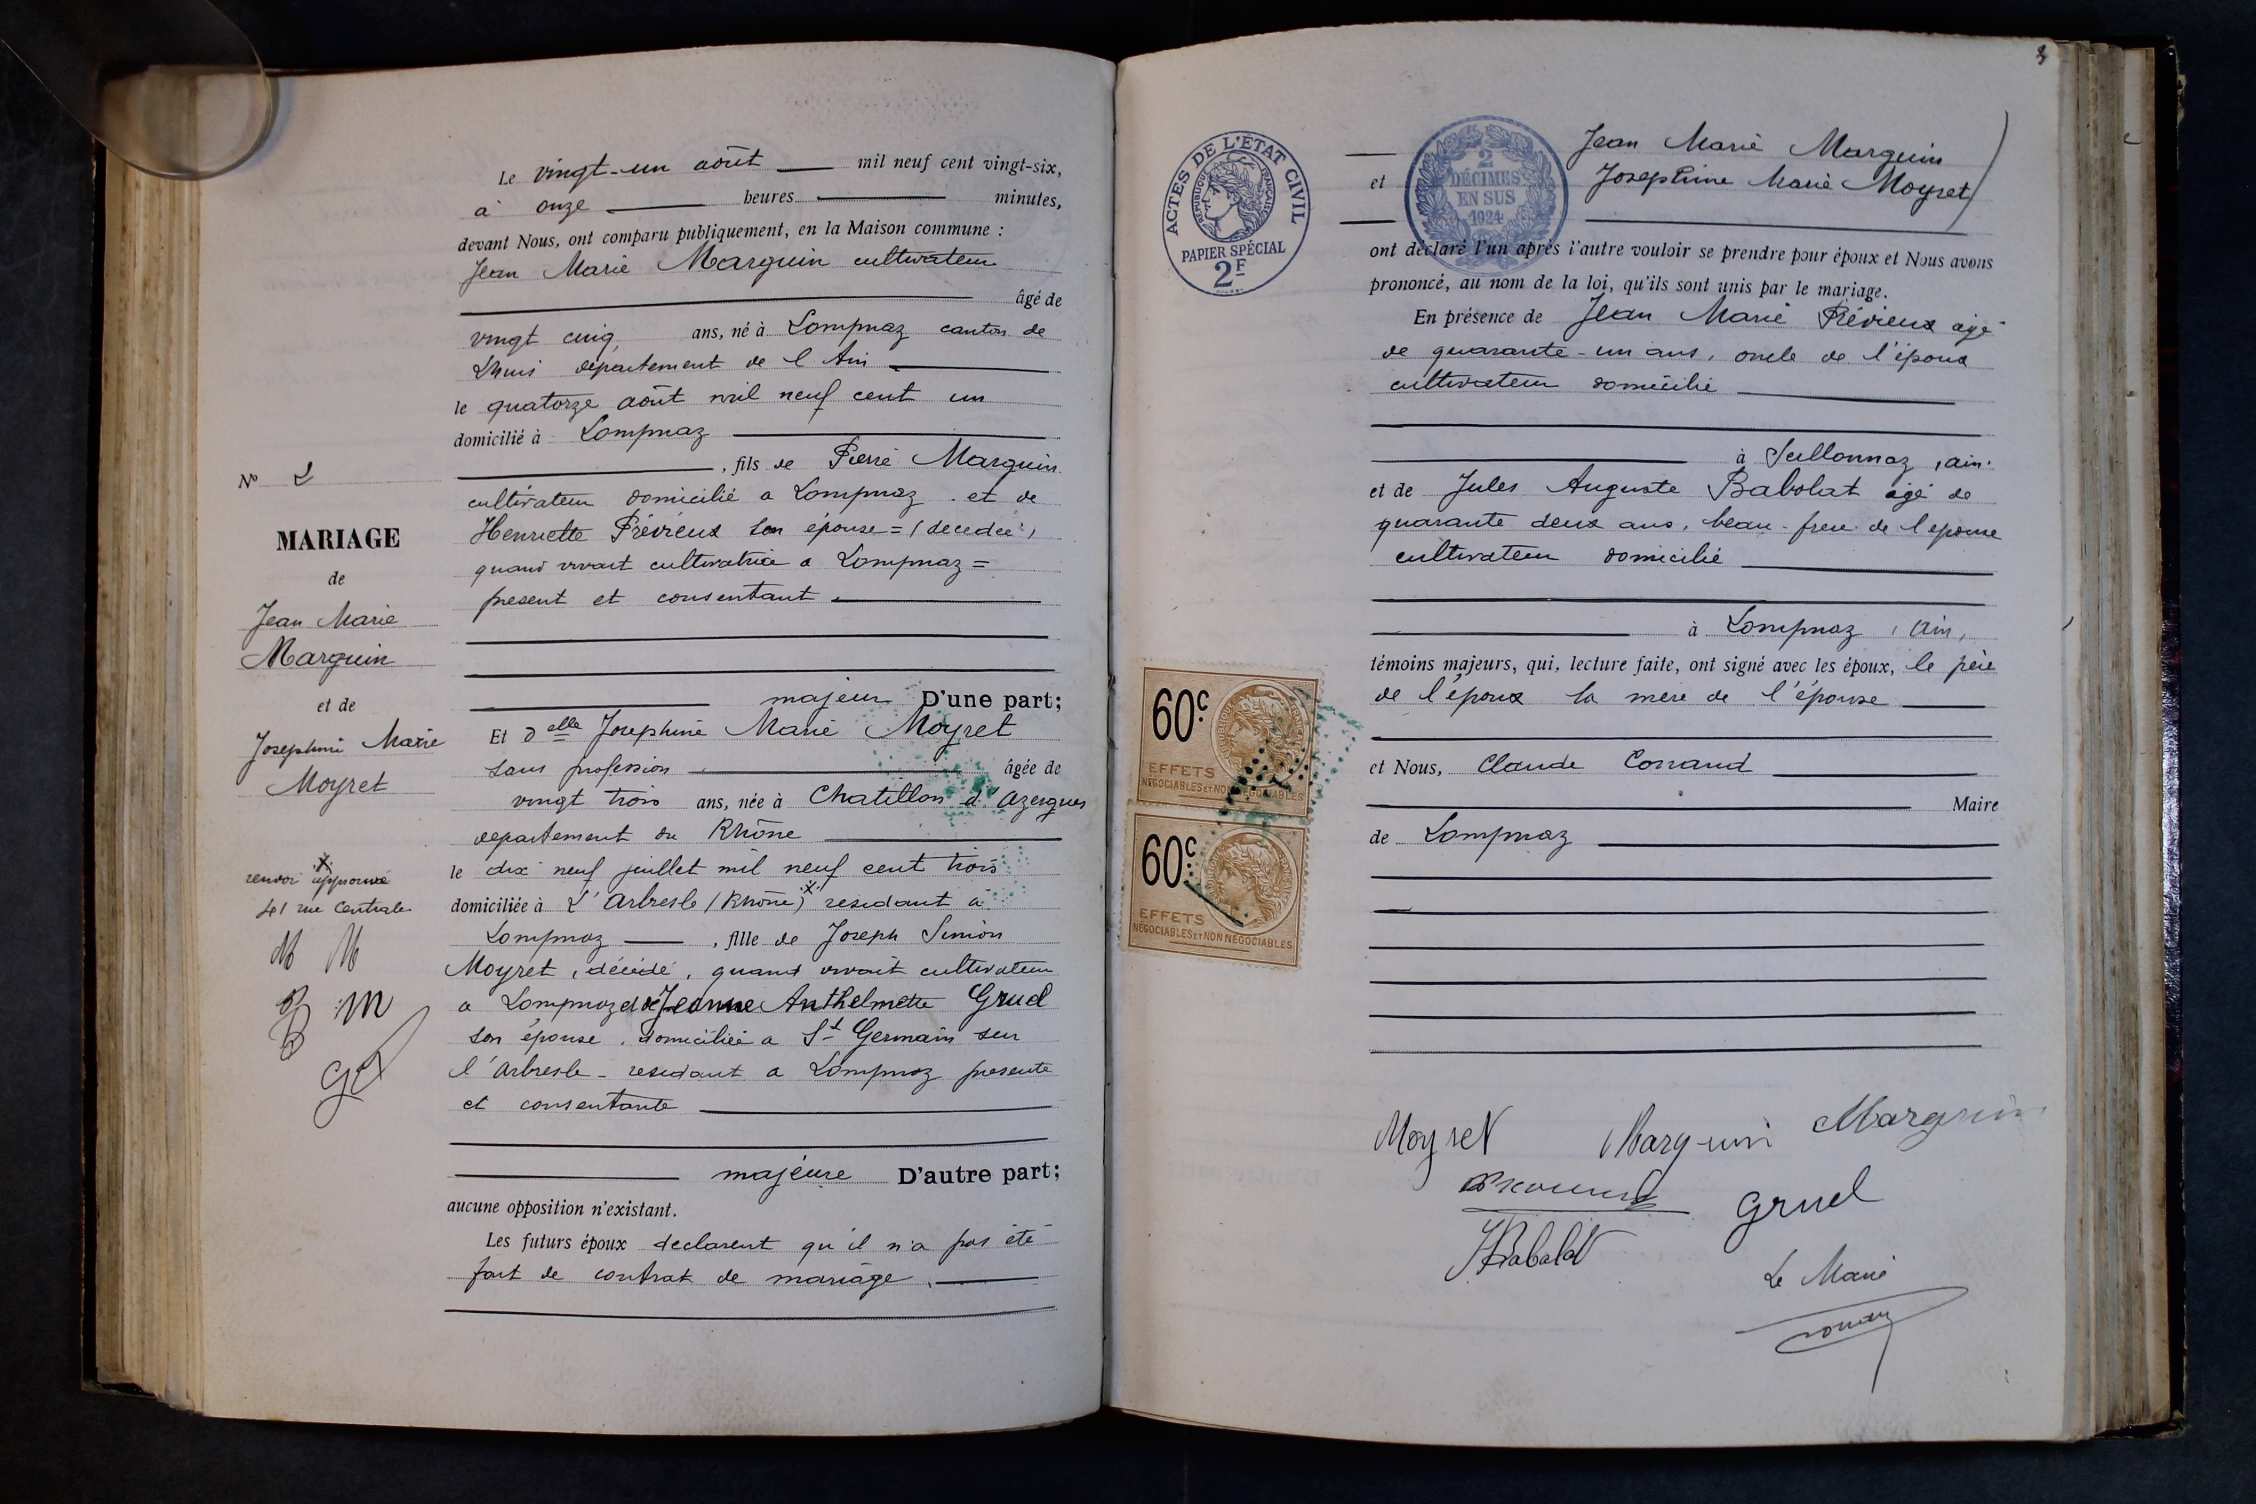 Le vingt-un août mil neuf cent vingt-six,
à onze heures minutes,
devant Nous, ont comparu publiquement, en la Maison commune :
Jean Marie Marguin cultivateur
âgé de
vingt cinq ans, né à Lompnaz canton de
Lhuis département de l'Ain
le quatorze août mil neuf cent un
domicilié à Lompnaz
, fils de Pierre Marguin
cultivateur domicilié a Lompnaz et de
Henriette Prévieux son épouse = (decedée)
quand vivait cultivatrice a Lompnaz =
présent et consentant
majeur D'une part;
Et Delle Josephine Marie Moyret
sans profession âgée de
vingt trois ans, née à Chatillon d'Azergues
departement du Rhône
le dix neuf juillet mil neuf cent trois
domiciliée à L'Arbresle (Rhône) x residant à
Lompnaz , fille de Joseph Simon
Moyret, décédé, quand vivait cultivateur
a Lompnaz et de Jeanne Anthelmette Gruel
son épouse, domiciliée a St Germain sur
l'Arbresle - residant a Lompnaz presente
et consentante
majeure D'autre part;
aucune opposition n'existant.
Les futurs époux declarent qu'il n'a pas été
fait de contrat de mariage.
No 2
MARIAGE
de
Jean Marie
Marguin
et de
Josephine Marie
Moyret
x
renvoi approuvé
41 rue Centrale
M M
B M
3
ACTES DE L'ÉTAT CIVIL
RÉPUBLIQUE FRANÇAISE
PAPIER SPÉCIAL
2F
2
DÉCIMES
EN SUS
1924
Jean Marie Marguin
et Josephine Marie Moyret
ont déclaré l'un après l'autre vouloir se prendre pour époux et Nous avons
prononcé, au nom de la loi, qu'ils sont unis par le mariage.
En présence de Jean Marie Prévieux agé
de quarante-un ans, oncle de l'époux
cultivateur domicilié
à Seillonnaz, ain.
et de Jules Auguste Babolat agé de
quarante deux ans, beau-frere de l'epouse
cultivateur domicilié
à Lompnaz, Ain,
témoins majeurs, qui, lecture faite, ont signé avec les époux, le père
de l'époux la mere de l'épouse
et Nous, Claude Conand
Maire
de Lompnaz
60c
EFFETS
NÉGOCIABLES ET NON NÉGOCIABLES
60c
EFFETS
NÉGOCIABLES ET NON NÉGOCIABLES
Moyret Marguin Marguin
Gruel
J Babolat
Le Maire